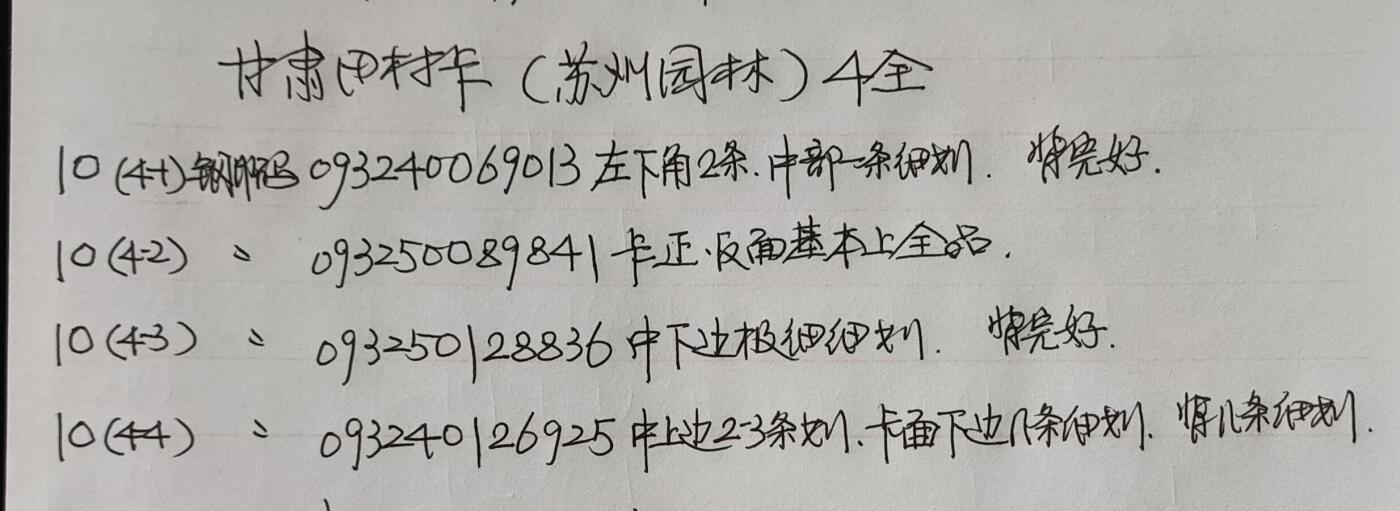 甘肃田村卡（苏州园林）4全
10(4-1)钢印码 093240069013 左下角2条.中部一条细划. 背完好.
10(4-2) 〃 093250089841 卡正.反面基本上全品.
10(4-3) 〃 093250128836 中下边极细细划. 背完好.
10(4-4) 〃 093240126925 中上边2-3条划.卡面下边几条细划. 背几条细划.